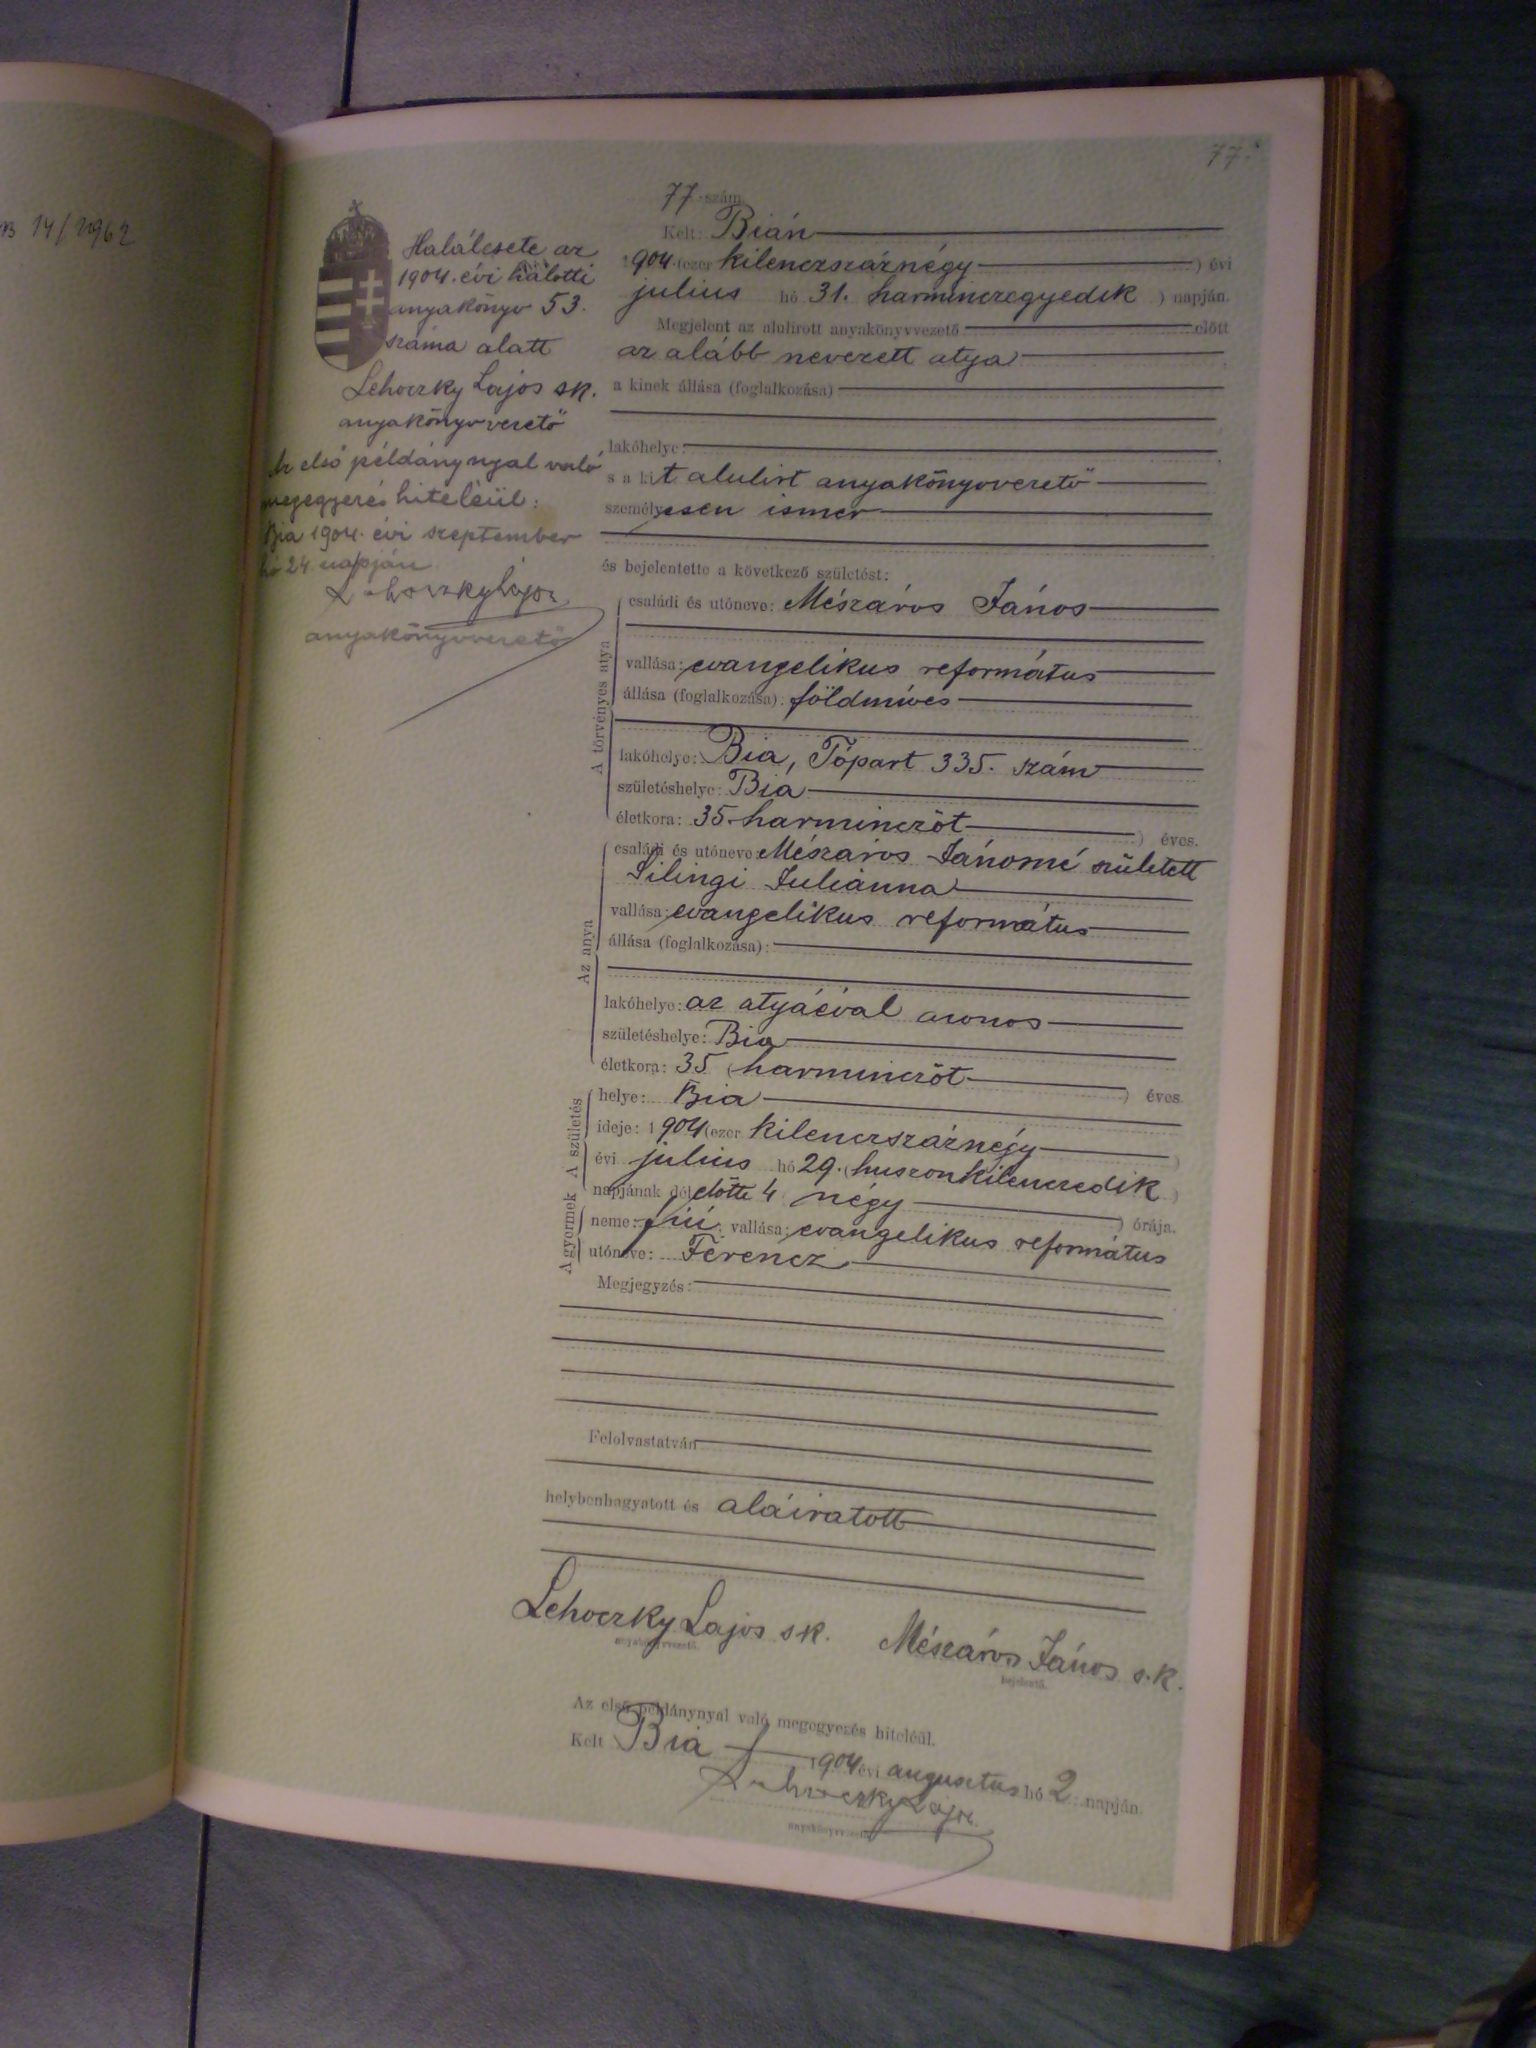 14/1962
77.
Halálesete az
1904. évi halotti
anyakönyv 53.
száma alatt
Lehoczky Lajos sk.
anyakönyvvezető
Az első példánynyal való
megegyezés hiteléül:
Bia 1904. évi szeptember
hó 24 napján
Lehoczky Lajos
anyakönyvvezető
77 szám
Kelt: Bián
1904 (ezer kilenczszáznégy ) évi
julius hó 31. harminczegyedik ) napján.
Megjelent az alulirott anyakönyvvezető előtt
az alább nevezett atya
a kinek állása (foglalkozása)
lakóhelye:
s a kit alulirt anyakönyvvezető
személyesen ismer
és bejelentette a következő születést:
A törvényes atya
családi és utóneve: Mészáros János
vallása: evangelikus református
állása (foglalkozása): földmíves
lakóhelye: Bia, Tópart 335. szám
születéshelye: Bia
életkora: 35 harminczöt ) éves.
Az anya
családi és utóneve: Mészáros Jánosné született
Silingi Juliánna
vallása: evangelikus református
állása (foglalkozása):
lakóhelye: az atyáéval azonos
születéshelye: Bia
életkora: 35 (harminczöt ) éves
A születés
helye: Bia
ideje: 1904 (ezer kilenczszáznégy )
évi julius hó 29. (huszonkilenczedik )
napjának délelőtte 4 négy ) órája.
A gyermek
neme: fiú vallása: evangelikus református
utóneve: Ferencz
Megjegyzés:
Felolvastatván
helybenhagyatott és aláiratott
Lehoczky Lajos sk. Mészáros János s.k.
anyakönyvvezető. bejelentő.
Az első példánynyal való megegyezés hiteléül.
Kelt Bia 1904 évi augusztus hó 2 napján.
Lehoczky Lajos
anyakönyvvezető